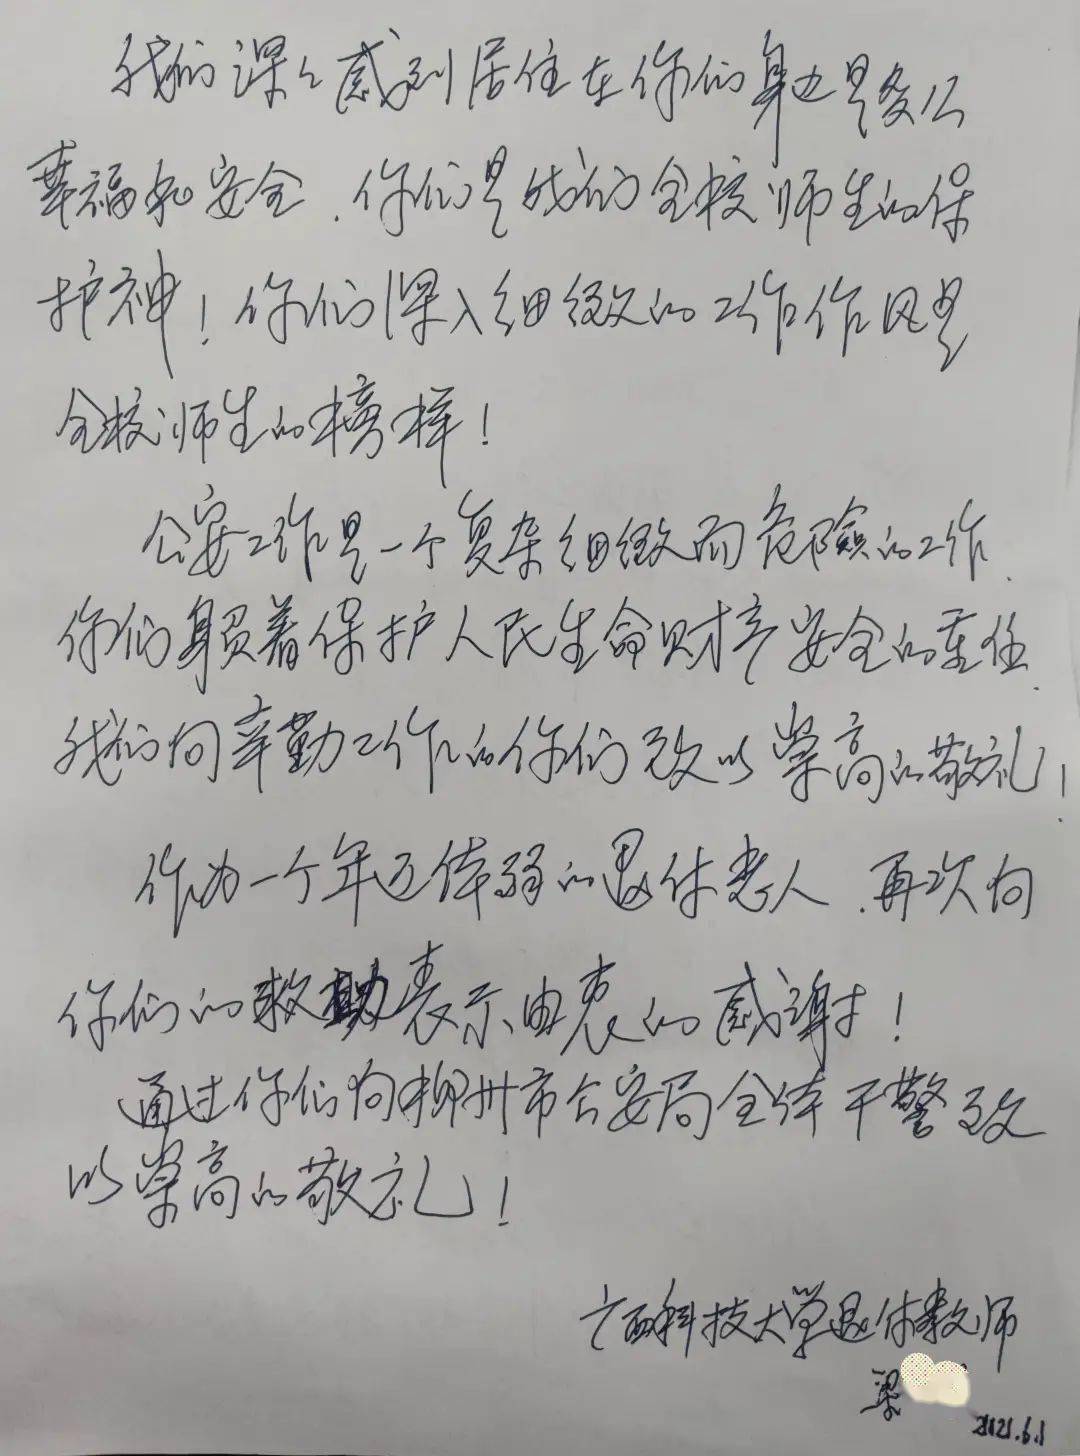 我们深深感到居住在你们身边是多么
幸福和安全.你们是我们全校师生的保
护神!你们深入细致的工作作风是
全校师生的榜样!
公安工作是一个复杂细致而危险的工作.
你们身负着保护人民生命财产安全的重任.
我们向辛勤工作的你们致以崇高的敬礼!
作为一个年迈体弱的退休老人.再次向
你们的救助表示由衷的感谢!
通过你们向柳州市公安局全体干警致
以崇高的敬礼!
广西科技大学退休教师
梁
2021.6.1